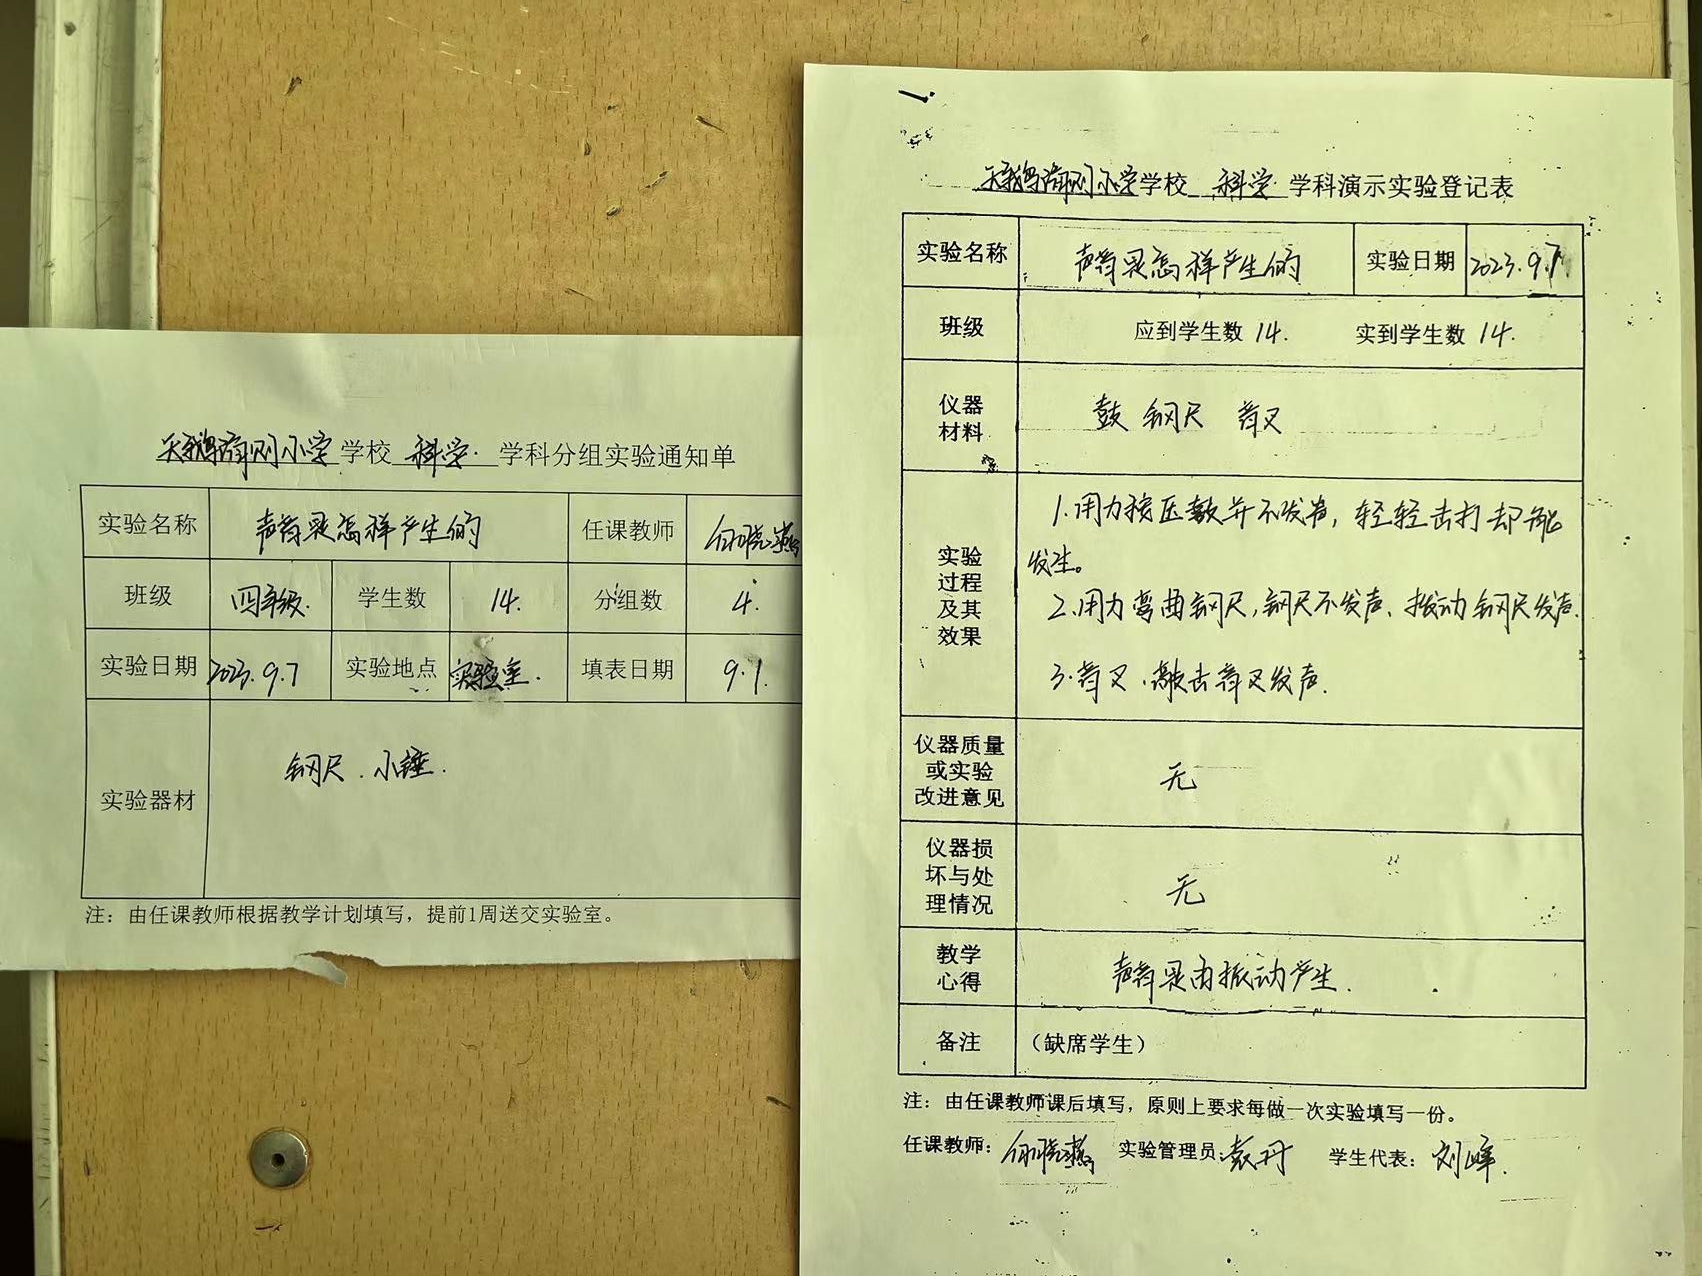 小学学校 科学 学科分组实验通知单
实验名称 声音是怎样产生的 任课教师
班级 四年级. 学生数 14. 分组数 4.
实验日期 2023.9.7 实验地点 实验室. 填表日期 9.1.
实验器材 钢尺.小锤.
注：由任课教师根据教学计划填写，提前1周送交实验室。
小学学校 科学 学科演示实验登记表
实验名称 声音是怎样产生的 实验日期 2023.9.7
班级 应到学生数 14. 实到学生数 14.
仪器材料 鼓 钢尺 音叉
实验过程及其效果
1.用力按压鼓并不发声，轻轻击打却能
发生。
2.用力弯曲钢尺，钢尺不发声.拨动钢尺发声.
3.音叉.敲击音叉发声.
仪器质量或实验改进意见 无
仪器损坏与处理情况 无
教学心得 声音是由振动产生.
备注 （缺席学生）
注：由任课教师课后填写，原则上要求每做一次实验填写一份。
任课教师： 实验管理员：袁丹 学生代表：刘峰.